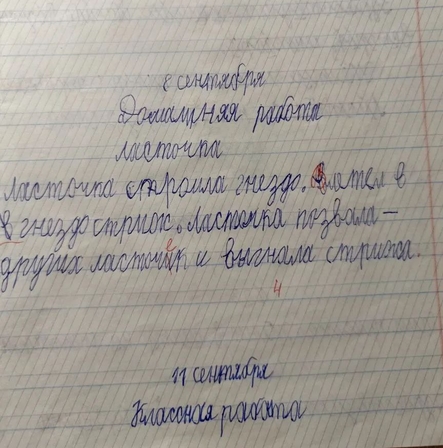 8 сентября
Домашняя работа
Ласточка
Ласточка строила гнездо. Влетел в
в гнездо стриж. Ласточка позвала
других ласточек и выгнала стрижа.
4
11 сентября
Классная работа